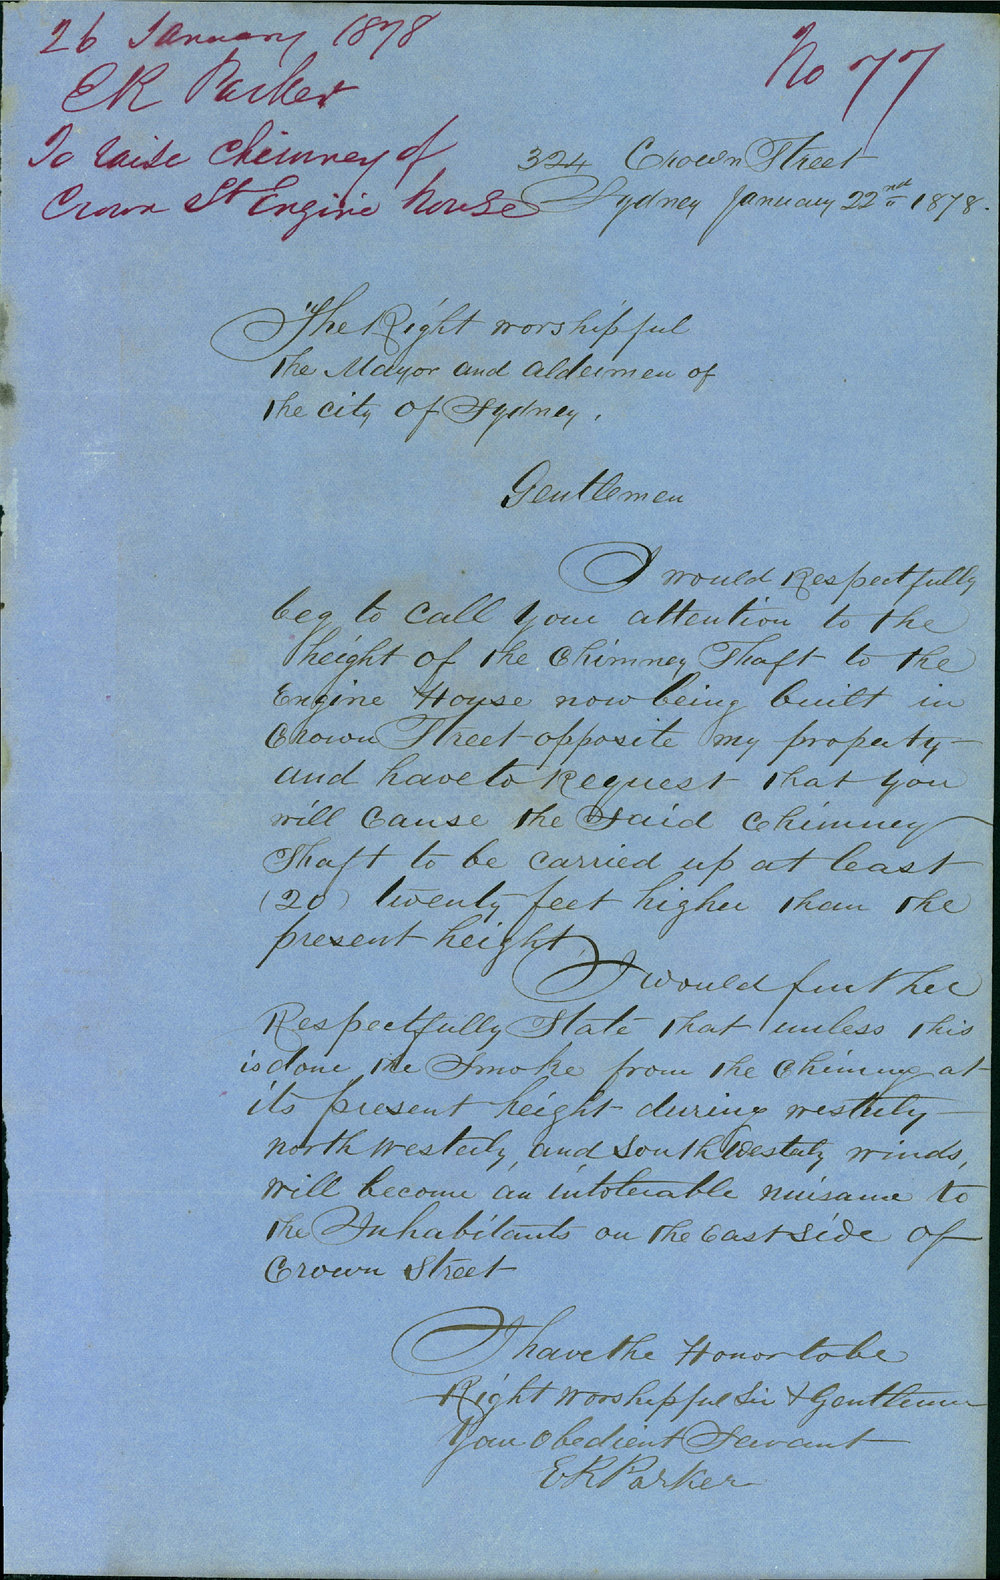 26 January 1878
No 77
E R Parker
To raise chimney of
Crown St Engine house
324 Crown Street
Sydney January 22nd 1878.
The Right worshipful
the Mayor and aldermen of
the city of Sydney.
Gentlemen
I would Respectfully
beg to call your attention to the
height of the Chimney Shaft to the
Engine House now being built in
Crown Street opposite my property
and have to Request that you
will Cause the Said Chimney
Shaft to be carried up at least
(20) twenty feet higher than the
present height
I would further
Respectfully State that unless this
is done the Smoke from the Chimney at
its present height during westerly
north westerly, and South Westerly winds,
will become an intolerable nuisance to
the Inhabitants on the East side of
Crown Street
I have the Honor to be
Right Worshipful Sir & Gentlemen
Your Obedient Servant
E R Parker